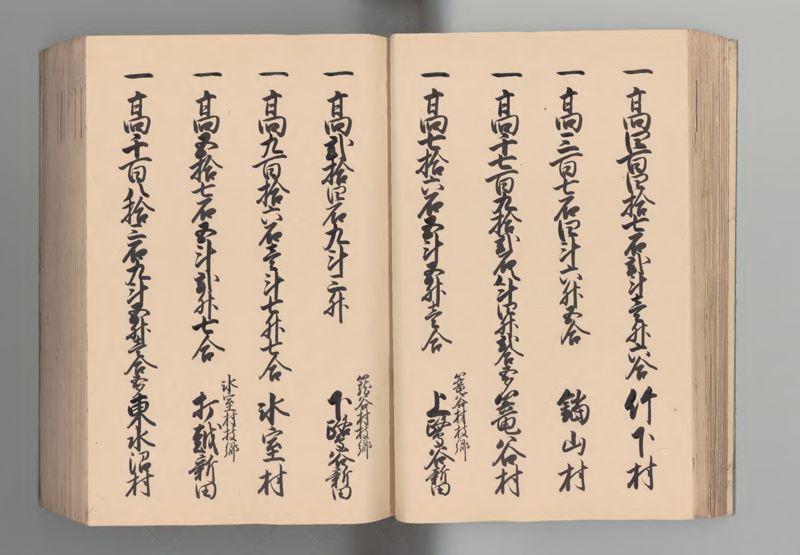 一高四百四拾七石弐斗壱升六合 竹下村
一高三百七石四斗六升五合 鐺山村
一高千七百九拾弐石八斗四升弐合 籠谷村
籠谷村枝郷
一高七拾六石五斗五升壱合 上鷺谷新田
籠谷村枝郷
一高弐拾四石九斗三升 下鷺谷新田
一高九百拾六石壱斗七升七合 氷室村
氷室村枝郷
一高五拾七石五斗弐升七合 打越新田
一高千百八拾三石九斗五升 東水沼村